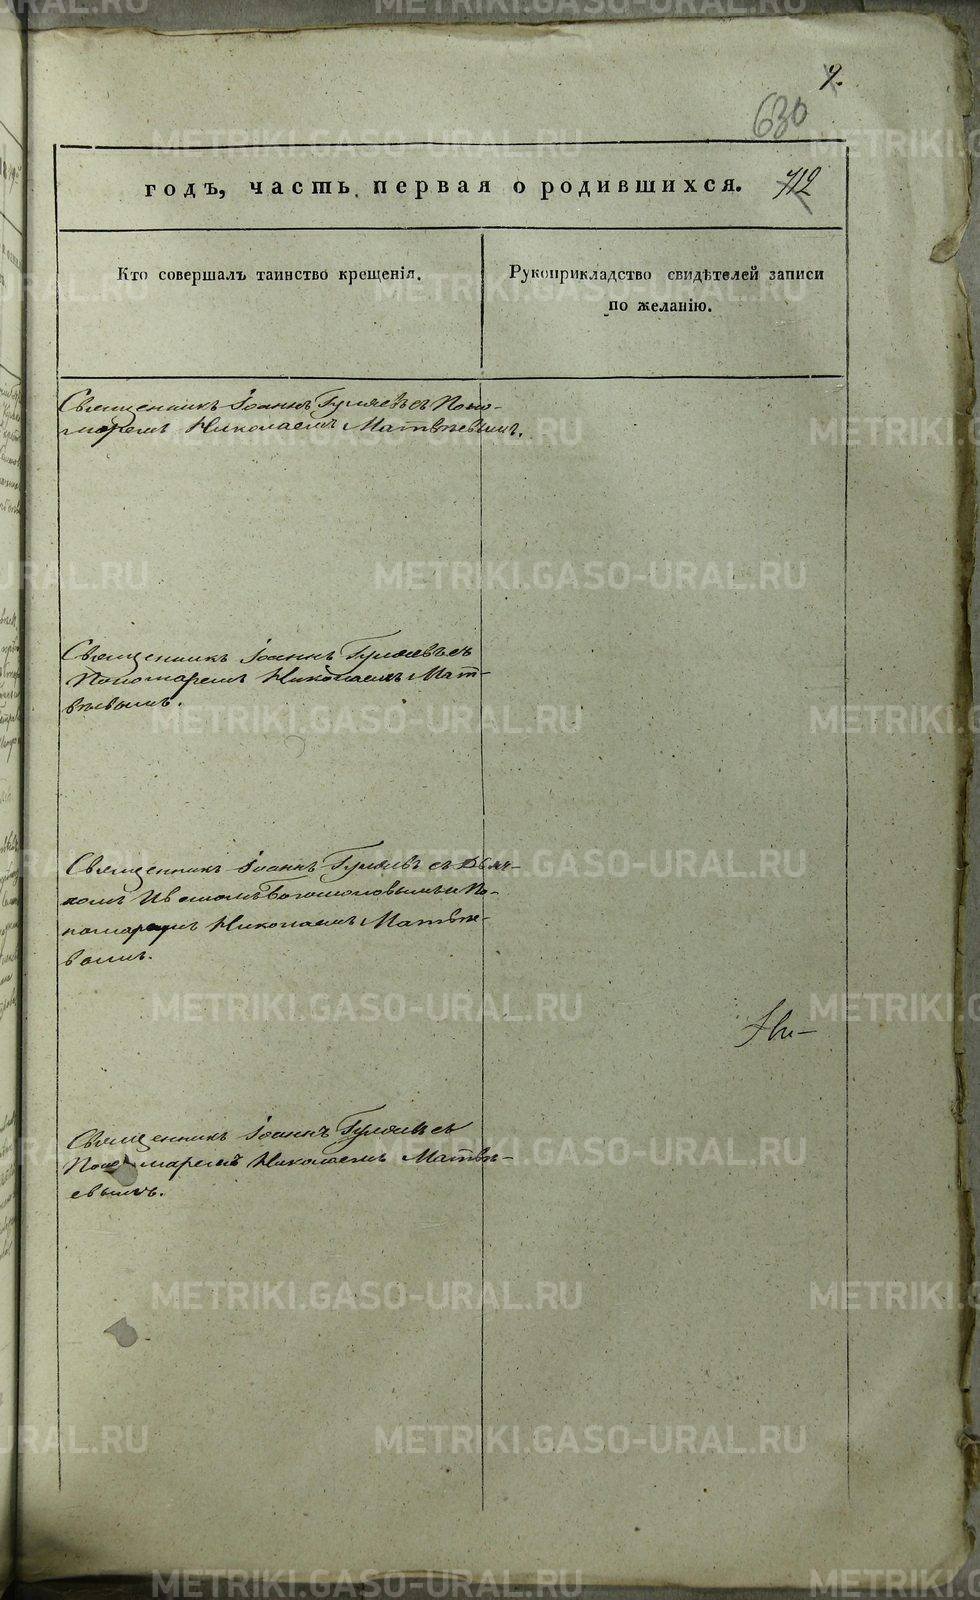 9.
630
годъ, часть первая о родившихся. 712
Кто совершалъ таинство крещенія.
Рукоприкладство свидѣтелей записи
по желанію.
Священникъ Іоаннъ Гуляевъ съ Поно-
маремъ Николаемъ Матвѣевымъ.
Священникъ Іоаннъ Гуляевъ съ
Пономаремъ Николаемъ Мат-
вѣевымъ.
Священникъ Іоаннъ Гуляевъ съ Дьяч-
комъ Иваномъ Богомоловымъ и По-
номаремъ Николаемъ Матвѣе-
вымъ.
Священникъ Іоаннъ Гуляевъ съ
Пономаремъ Николаемъ Матвѣ-
евымъ.
METRIKI.GASO-URAL.RU